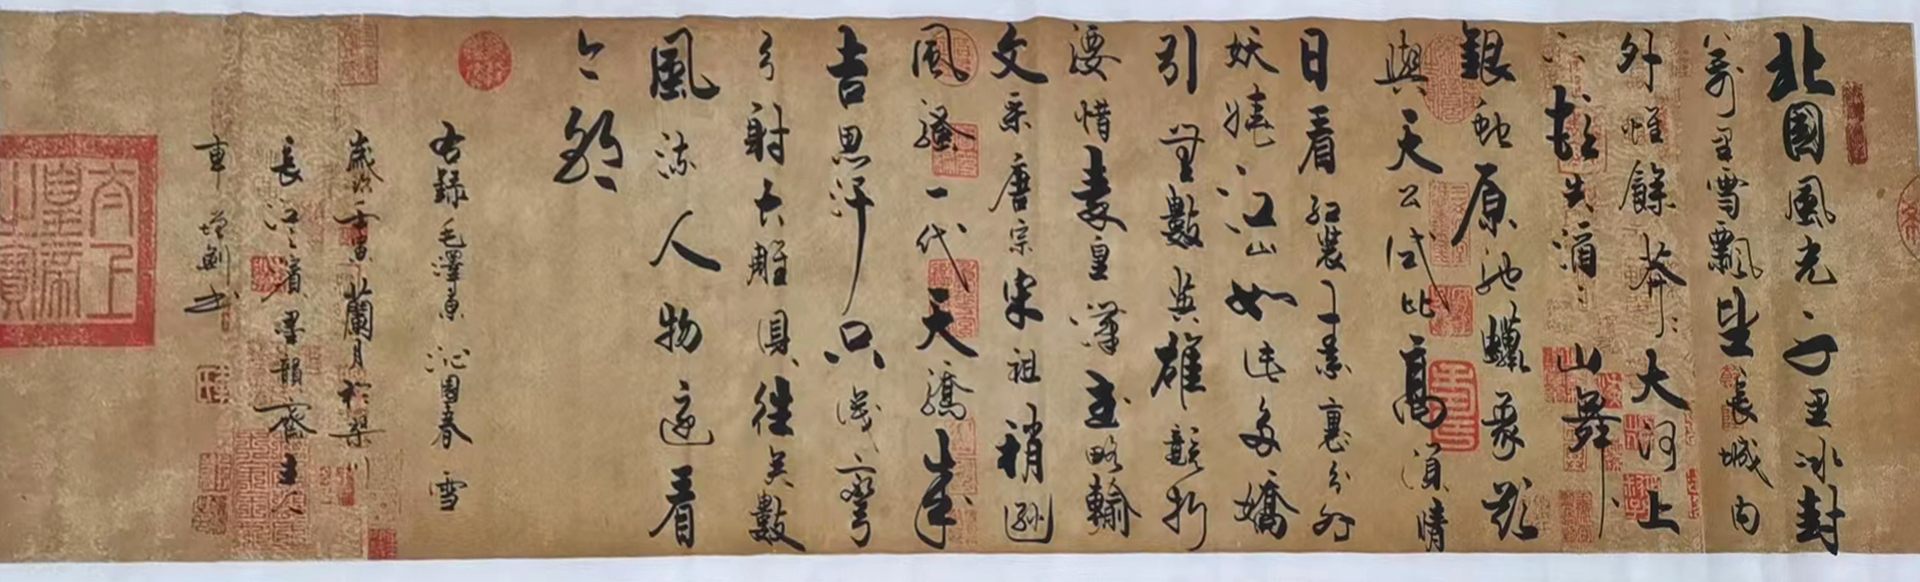 北國風光千里冰封
萬里雪飄望長城內
外惟餘莽々大河上
下頓失滔々山舞
銀蛇原馳蠟象欲
與天公試比高須晴
日看紅裝素裹分外
妖嬈江山如此多嬌
引無數英雄競折
腰惜秦皇漢武略輸
文采唐宗宋祖稍遜
風騷一代天驕成
吉思汗只識彎
弓射大雕俱往矣數
風流人物還看
今朝
右錄毛澤東沁園春雪
歲次壬寅蘭月於梁川
長江之濱墨韻齋主人
車增劍書
太上
皇帝
之寶